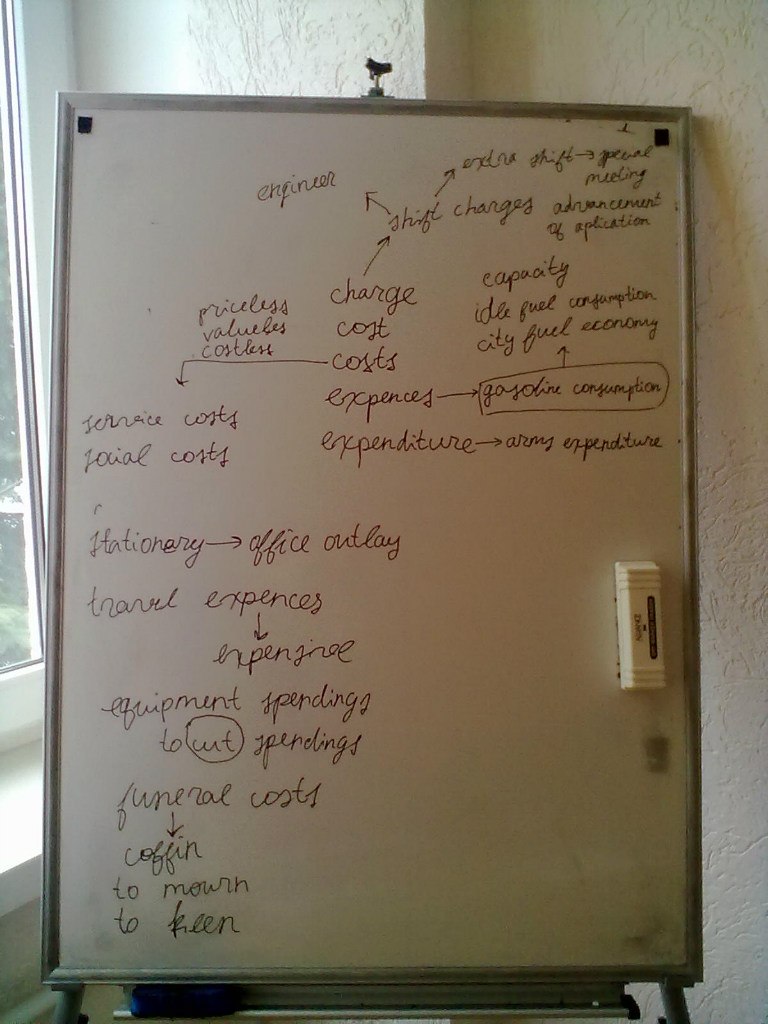 extra shift → special
meeting
engineer
shift charges
advancement
of aplication
charge
cost
costs
priceless
valueles
costless
capacity
idle fuel consumption
city fuel economy
expences → gasoline consumption
service costs
social costs
expenditure → arms expenditure
stationary → office outlay
travel expences
expensive
equipment spendings
to cut spendings
funeral costs
coffin
to mourn
to keen